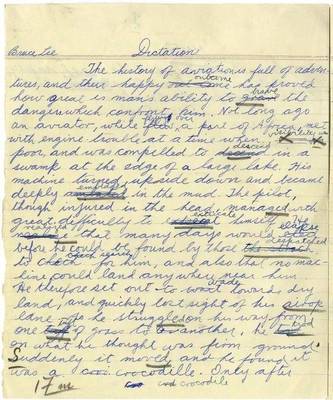 Bruce Lee Dictation
The history of aviation is full of adven
tures, and their happy outcome has proved
how great is man's ability to brave the
dangers which confront him. Not long ago
an aviator, while over a part of met
with engine trouble at a time when visibility was x
poor, and was compelled to descend in a
swamp at the edge of a large lake. His
machine turned upside down and became
deeply in the mud. The pilot,
though injured in the head, managed with
great difficulty to himself. He
realized that many days would elapse
before he could be found by those despatched
to search for him, and also that no ma-
chine could land any where near him
He therefore set out to wade toward dry
land, and quickly lost sight of his airop
lane As he struggled on his way from
one of grass to another, he trod
on what he thought was firm ground.
Suddenly it moved and he found it
was a crocodille. Only after
17 m crocodile